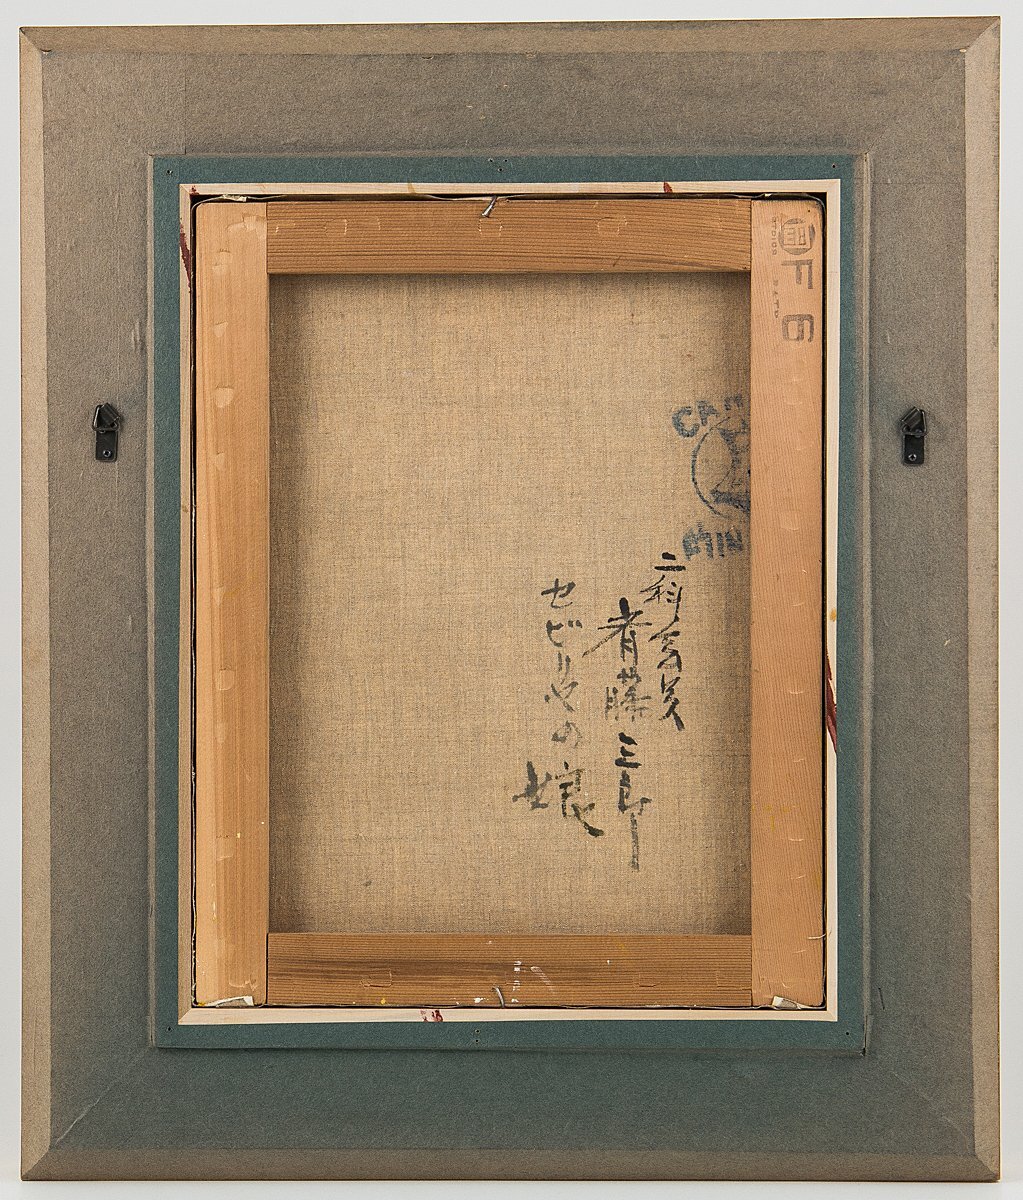 F 6
二科会員
斉藤三郎
セビリヤの娘